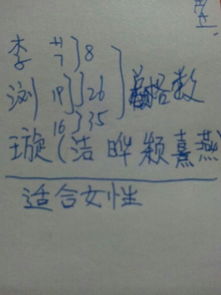 李 7 ] 8
浏 19 ] 26 格数
16 ] 35
璇 (洁 晔 颖 熹 燕
适合女性